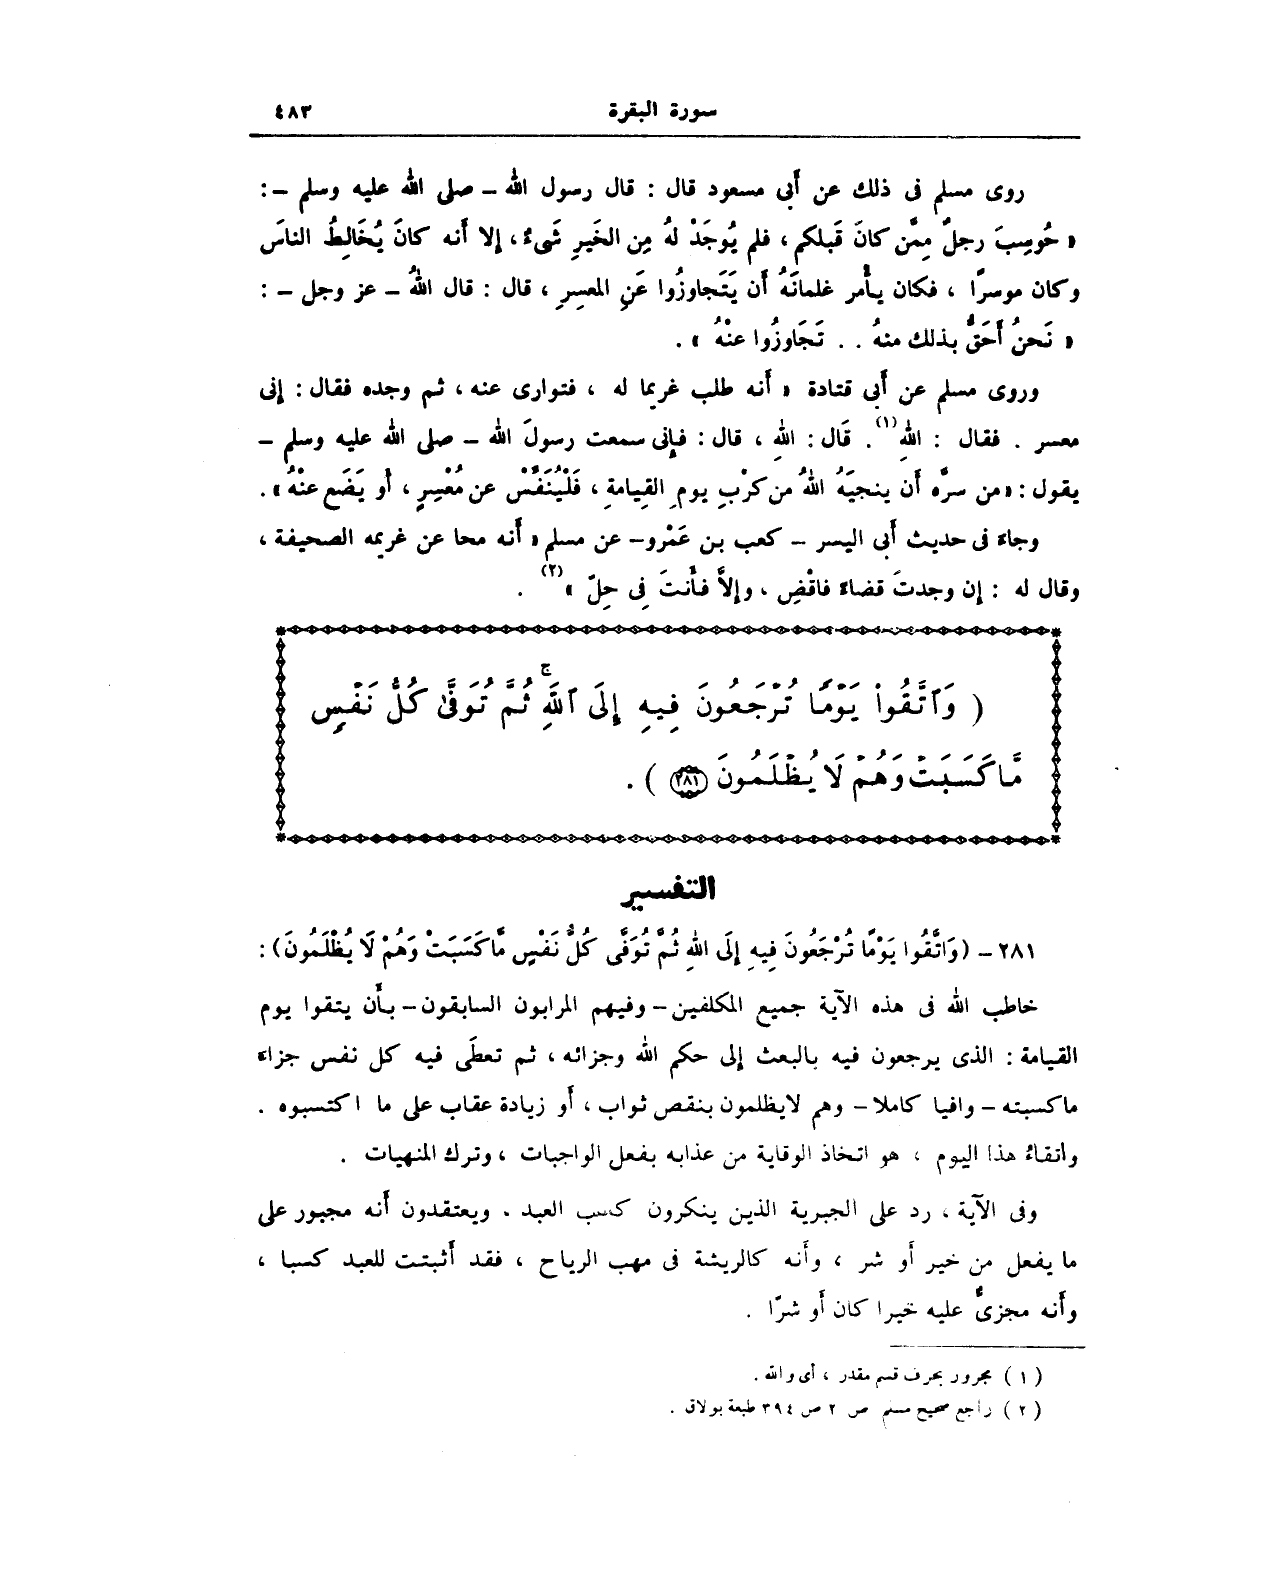 سورة البقرة ٤٨٣
روى مسلم فى ذلك عن أَبى مسعود قال : قال رسول الله – صلى الله عليه وسلم – :
« حُوسِبَ رجلٌ مِمَّن كانَ قَبلَكم ، فلم يُوجَدْ لهُ مِن الخَيرِ شَىءٌ ، إلا أَنه كانَ يُخَالِطُ الناسَ
وكان موسرًا ، فكان يأْمر غلمانَهُ أَن يَتَجاوزُوا عَنِ المعسِرِ ، قال : قال اللهُ – عز وجل – :
« نَحنُ أَحَقُّ بذلك منهُ . . تَجَاوزُوا عنْهُ » .
وروى مسلم عن أَبى قتادة « أَنه طلب غريما له ، فتوارى عنه ، ثم وجده فقال : إنى
معسر . فقال : اللهِ (١) . قَال : اللهِ ، قال : فإنى سمعت رسولَ الله – صلى الله عليه وسلم –
يقول : «من سرَّه أَن ينجيَهُ اللهُ من كرْبِ يومِ القِيامةِ ، فَلْيُنَفِّسْ عن مُعْسِرٍ ، أَو يَضَع عنْهُ» .
وجاءَ فى حديث أَبى اليسر – كعب بن عَمْرو– عن مسلم « أَنه محا عن غريمه الصحيفة ،
وقال له : إن وجدتَ قضاءً فاقْضِ ، وإلاَّ فأَنتَ فِى حِلّ » (٢) .
( وَٱتَّقُوا۟ يَوْمًا تُرْجَعُونَ فِيهِ إِلَى ٱللَّهِ ۚ ثُمَّ تُوَفَّىٰ كُلُّ نَفْسٍ
مَّا كَسَبَتْ وَهُمْ لَا يُظْلَمُونَ ٢٨١ ) .
التفسير
٢٨١ – (وَاتَّقُوا يَوْمًا تُرْجَعُونَ فِيهِ إِلَى اللهِ ثُمَّ تُوَفَّى كُلُّ نَفْسٍ مَّا كَسَبَتْ وَهُمْ لَا يُظْلَمُونَ) :
خاطب الله فى هذه الآية جميع المكلفين – وفيهم المرابون السابقون – بأَن يتقوا يوم
القيامة : الذى يرجعون فيه بالبعث إلى حكم الله وجزائه ، ثم تعطَى فيه كل نفس جزاءَ
ما كسبته – وافيا كاملا – وهم لايظلمون بنقص ثواب ، أَو زيادة عقاب على ما اكتسبوه .
واتقاءُ هذا اليوم ، هو اتخاذ الوقاية من عذابه بفعل الواجبات ، وترك المنهيات .
وفى الآية ، رد على الجبرية الذين ينكرون كسب العبد . ويعتقدون أَنه مجبور على
ما يفعل من خير أَو شر ، وأَنه كالريشة فى مهب الرياح ، فقد أَثبتت للعبد كسبا ،
وأَنه مجزىٌّ عليه خيرا كان أَو شرًّا .
( ١ ) مجرور بحرف قسم مقدر ، أى والله .
( ٢ ) راجع صحيح مسلم ص ٢ ص ٣٩٤ طبعة بولاق .